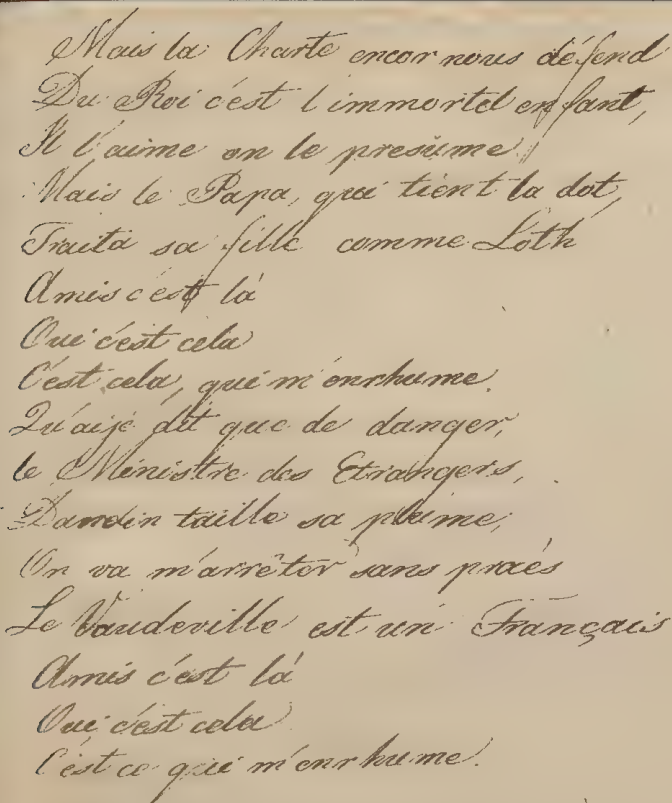 Mais la Charte encor nous défend
Du Roi c'est l'immortel enfant,
Il l'aime on le presume.
Mais le Papa, qui tient la dot,
Traita sa fille comme Loth
Amis c'est là
Oui c'est cela
C'est cela, qui m'enrhume.
Qu'aije dit que de danger,
le Ministre des Etrangers,
Dandin taille sa plume;
On va m'arrêter sans procès
Le Vaudeville est un Français
Amis c'est là
Oui c'est cela
C'est ce qui m'enrhume.